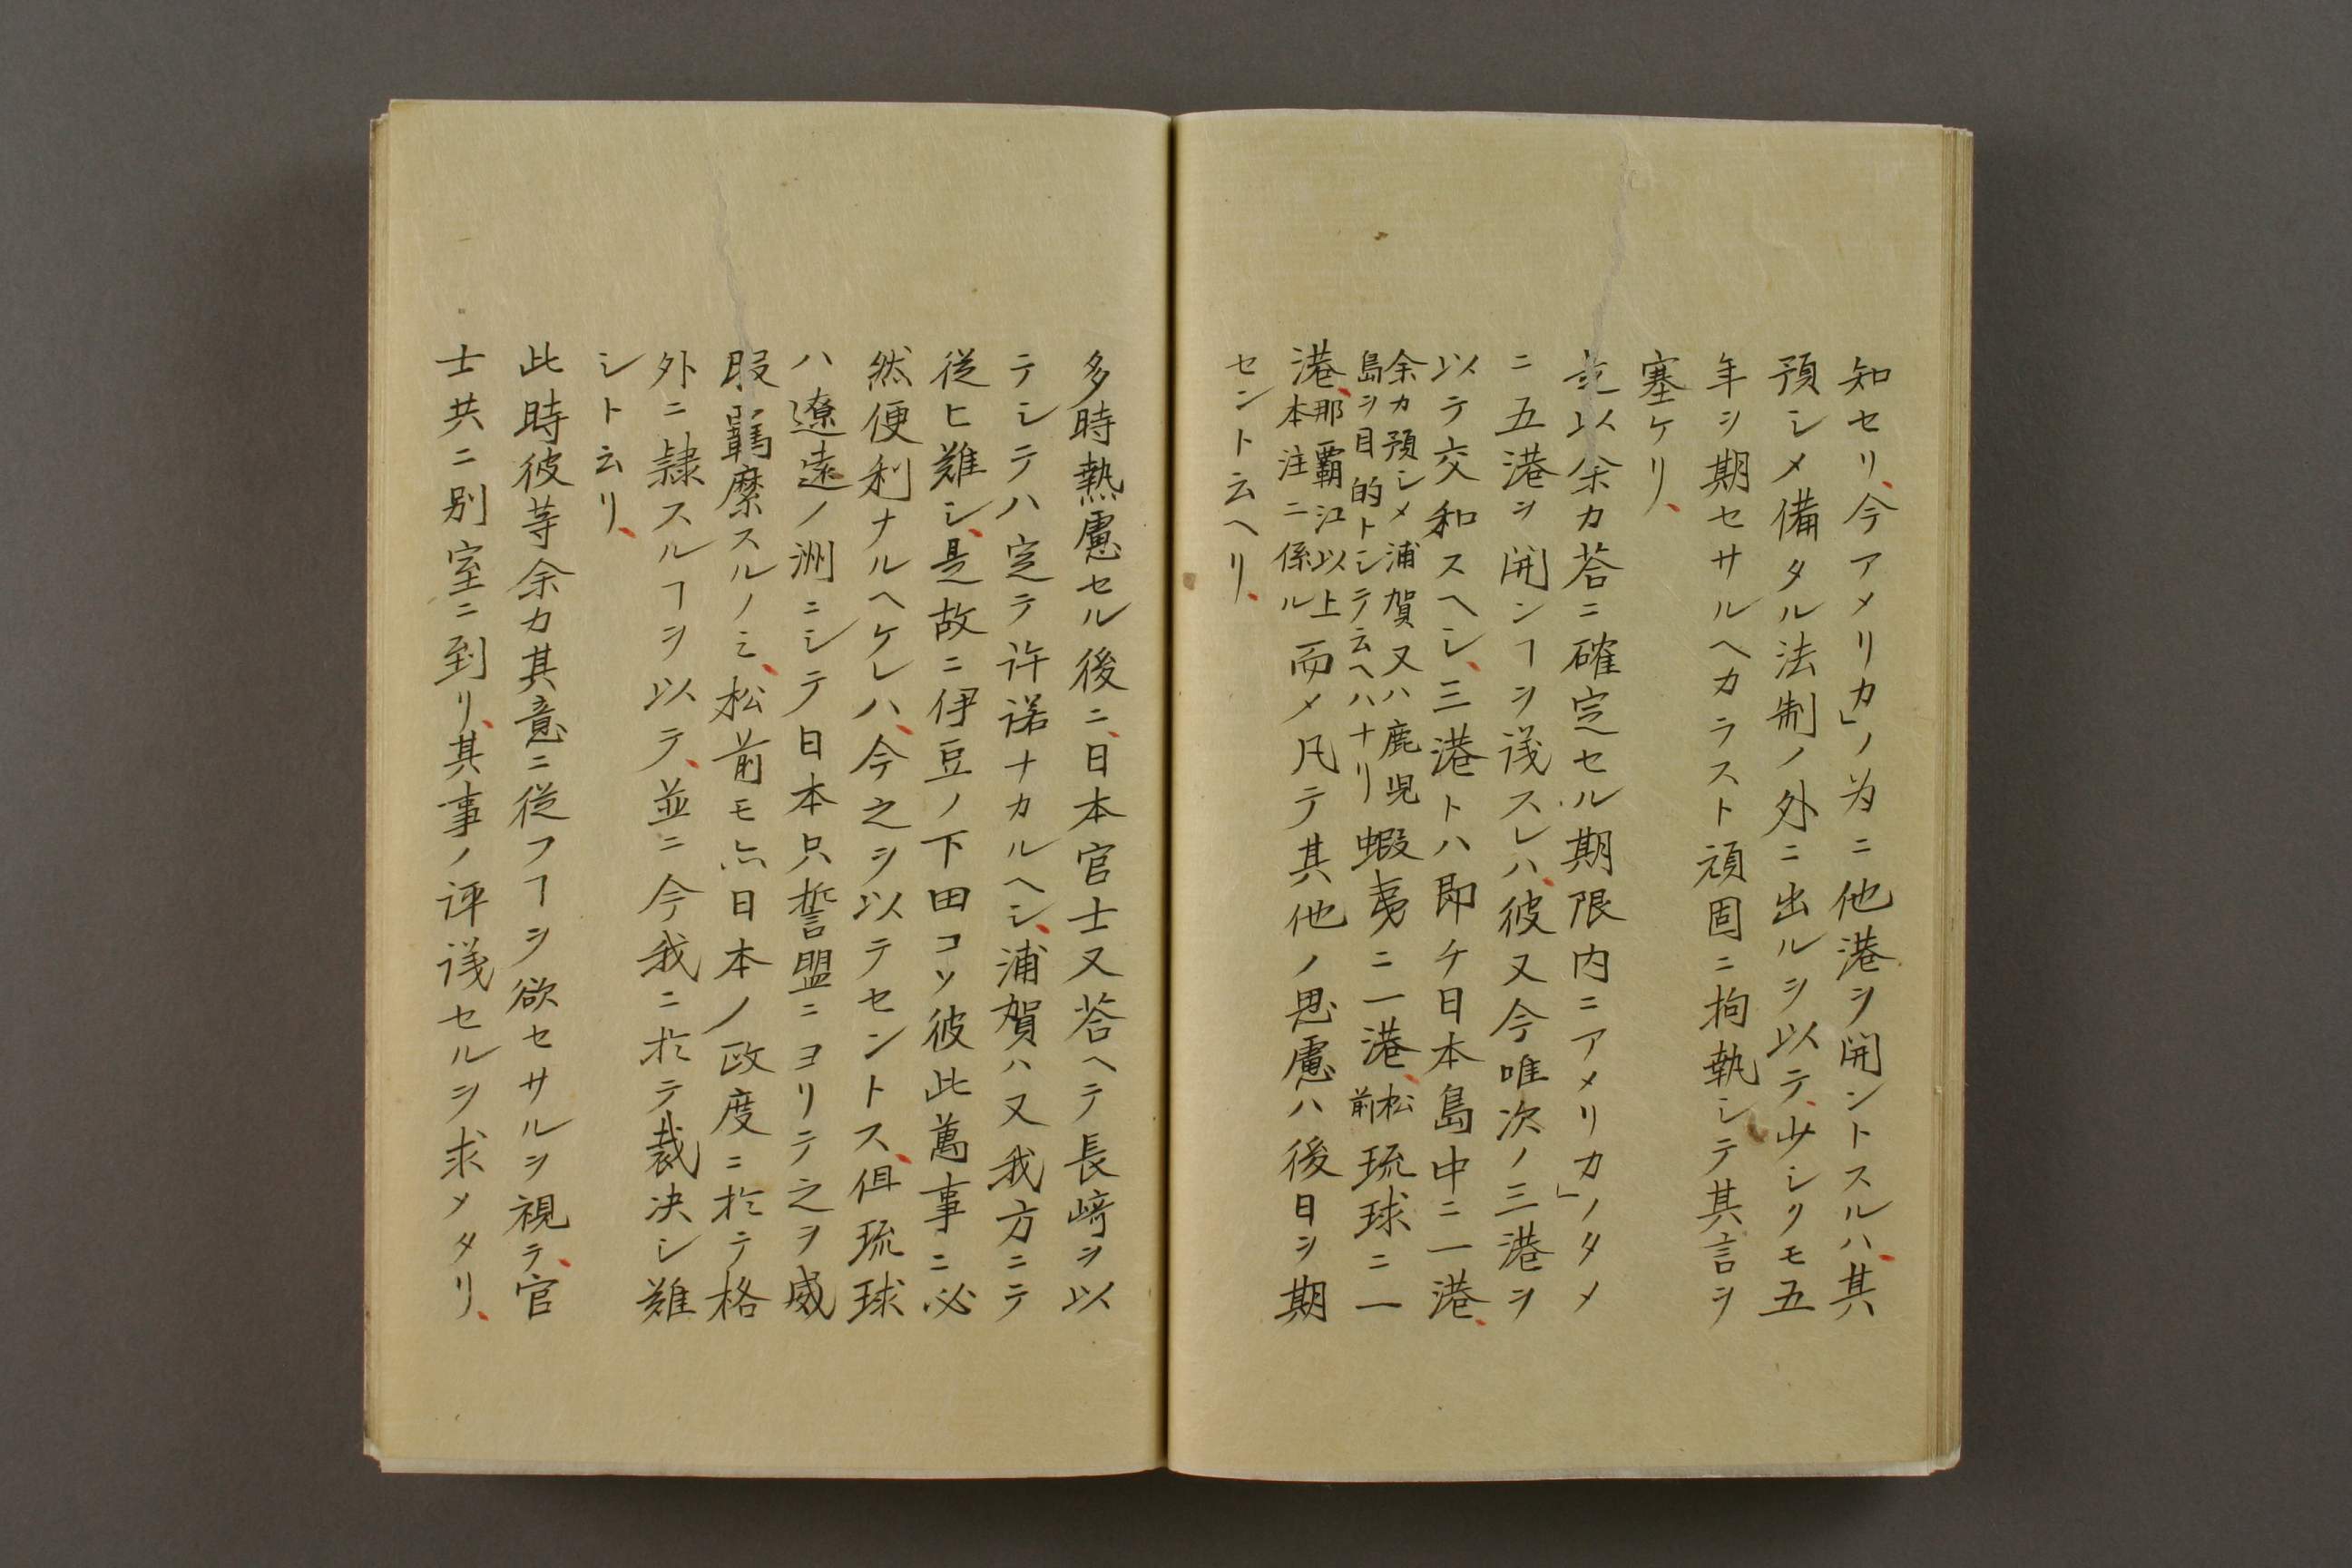 知セリ、今アメリカ」ノ为ニ他港ヲ開ントスルハ、其
預シメ備タル法制ノ外ニ出ルヲ以テ、少シクモ五
年ヲ期セサルヘカラスト頑固ニ拘執シテ其言ヲ
塞ケリ、
是以余カ荅ニ確定セル期限内ニアメリカ」ノタメ
ニ五港ヲ開ンヿヲ議スレハ、彼又今唯次ノ三港ヲ
以テ交和スヘシ、三港トハ即ケ日本島中ニ一港、
余カ預シメ浦賀又ハ鹿児
島ヲ目的トシテ云ヘハナリ
蝦夷ニ一港、
松
前
琉球ニ一
港、
那覇江以上
本注ニ係ル
而メ凡テ其他ノ思慮ハ後日ヲ期
セント云ヘリ、
多時熟慮セル後ニ、日本官士又荅ヘテ長﨑ヲ以
テシテハ定テ许諾ナカルヘシ、浦賀ハ又我方ニテ
従ヒ難シ、是故ニ伊豆ノ下田コソ彼此萬事ニ必
然便利ナルヘケレハ、今之ヲ以テセントス、但琉球
ハ遼遠ノ洲ニシテ日本只誓盟ニヨリテ之ヲ威
服羈縻スルノミ、松前モ亦日本ノ政度ニ於テ格
外ニ隷スルヿヲ以テ、並ニ今我ニ於テ裁决シ難
シト云リ、
此時彼等余カ其意ニ従フヿヲ欲セサルヲ視テ、官
士共ニ别室ニ到リ、其事ノ评議セルヲ求メタリ、